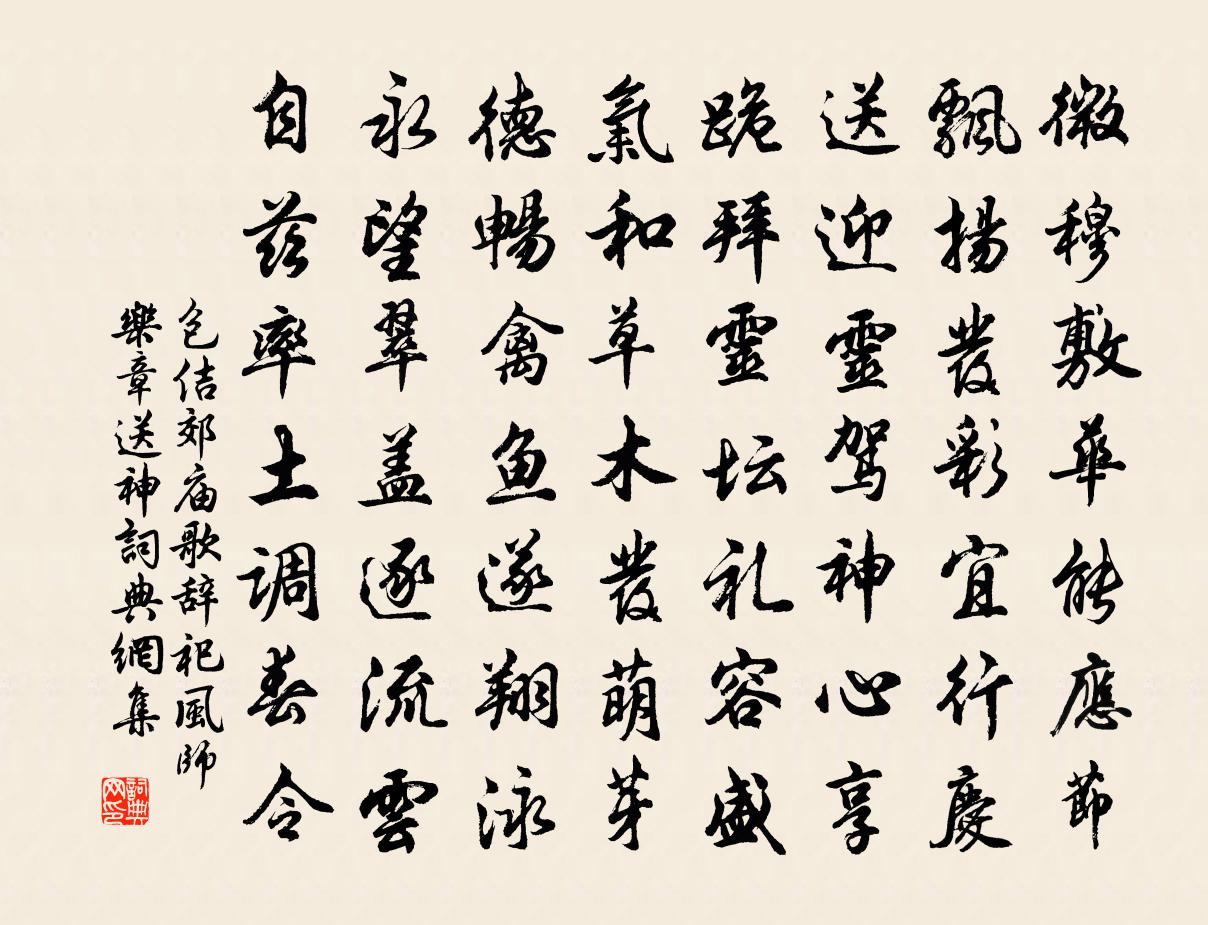 微穆敷華能應節
飄揚發彩宜行慶
送迎靈駕神心享
跪拜靈坛礼容盛
氣和草木發萌芽
德暢禽鱼遂翔泳
永望翠盖逐流雲
自兹率土调春令
包佶郊庙歌辞祀風師
樂章送神詞典網集
詞典
网印